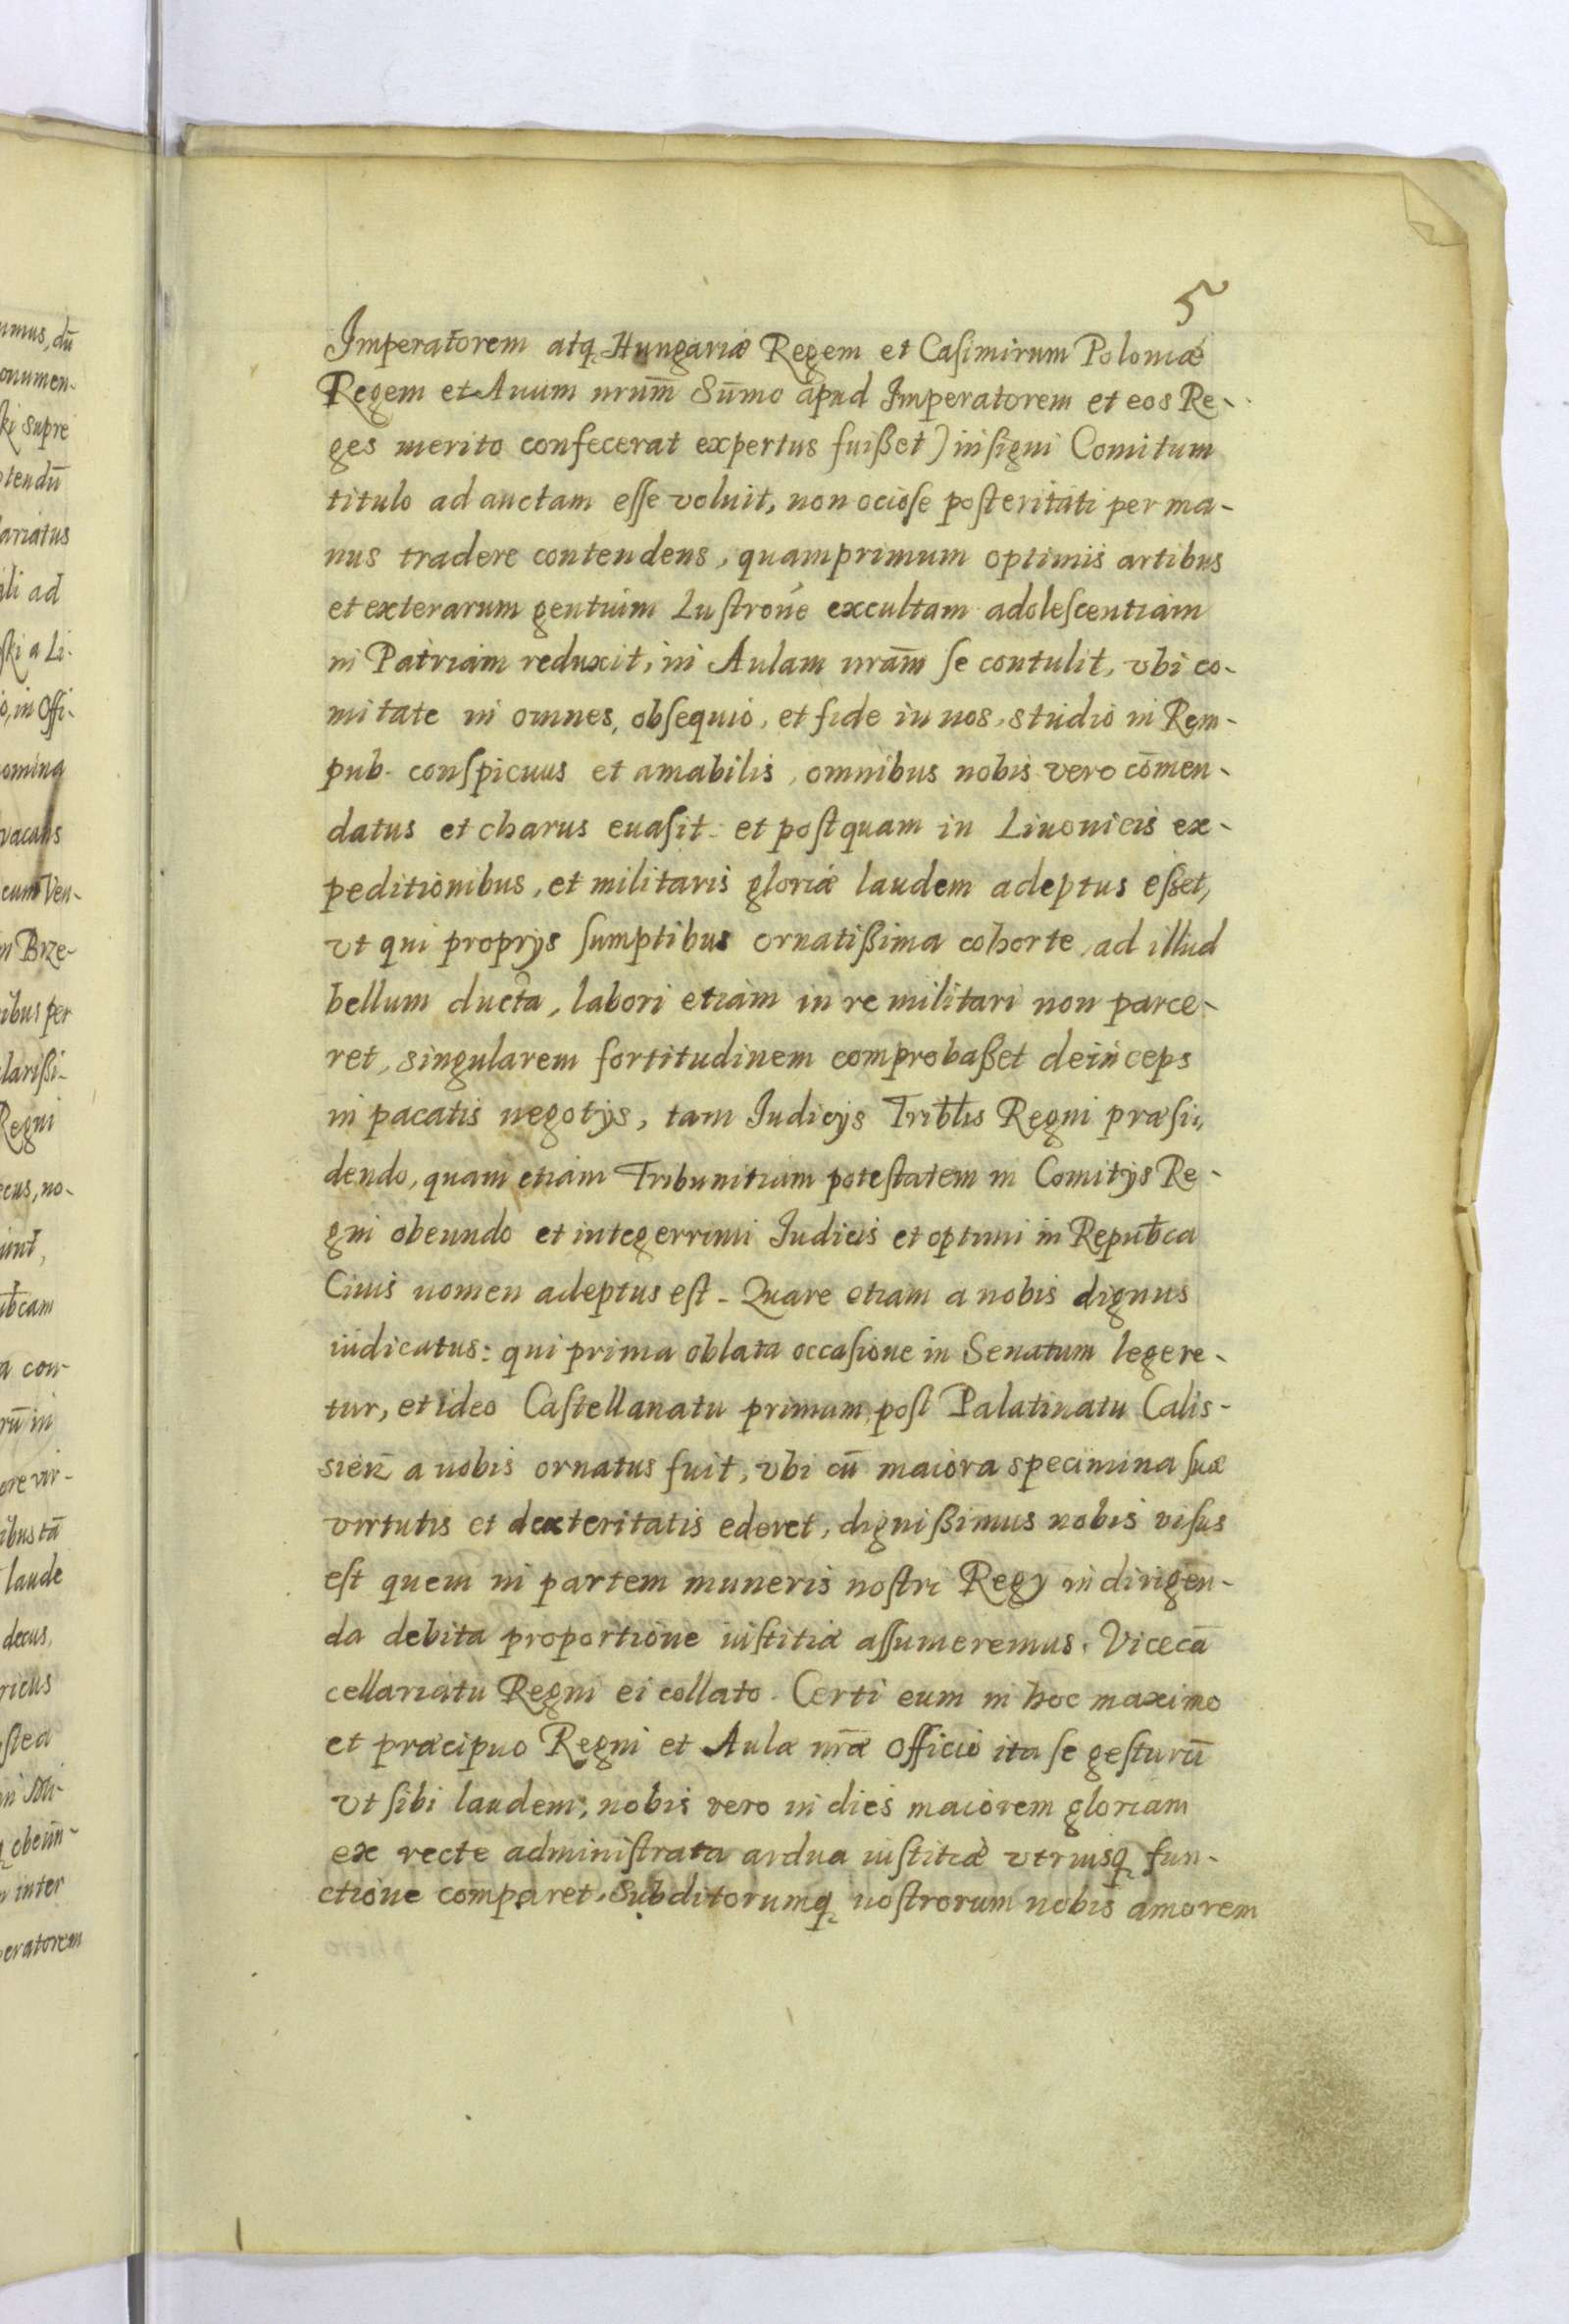 5
Imperatorem atq Hungariæ Regem et Casimirum Poloniæ
Regem et Auum nrum̄ Sum̄o apud Imperatorem et eos Re-
ges merito confecerat expertus fuißet) insigni Comitum
titulo ad auctam eſſe voluit, non ocioſe poſteritati per ma-
nus tradere contendens, quamprimum optimis artibus
et exterarum gentium Luſtrone excultam adoleſcentiam
in Patriam reduxit, in Aulam nram̄ ſe contulit, vbi co-
mitate in omnes, obſequio, et fide in nos, studio in Rem-
pub. conſpicuus et amabilis, omnibus nobis vero com̄en-
datus et charus euaſit. et poſtquam in Liuonicis ex-
peditionibus, et militaris gloriæ laudem adeptus eßet,
vt qui proprys ſumptibus ornatißima cohorte, ad illud
bellum ducta, labori etiam in re militari non parce-
ret, singularem fortitudinem comprobaßet deinceps
in pacatis negotys, tam Iudicys Tribtis Regni præſi-
dendo, quam etiam Tribunitiam poteſtatem in Comitys Re-
gni obeundo et integerrimi Iudicis et optimi in Republca
Ciuis nomen adeptus eſt. Quare etiam a nobis dignus
iudicatus: qui prima oblata occaſione in Senatum legere-
tur, et ideo Caſtellanatu primum, poſt Palatinatu Calis-
sien̄ a nobis ornatus fuit, vbi cū maiora specimina ſuæ
virtutis et dexteritatis ederet, dignißimus nobis viſus
eſt quem in partem muneris noſtri Regy in dirigen-
da debita proportione iuſtitia aſſumeremus. Vicecā
cellariatu Regni ei collato. Certi eum in hoc maximo
et præcipuo Regni et Aulæ nr̄æ Officio ita ſe geſturū
vt ſibi laudem, nobis vero in dies maiorem gloriam
ex recte adminiſtrata ardua iuſtitiæ vtriusq fun-
ctione comparet, Subditorumq noſtrorum nobis amorem